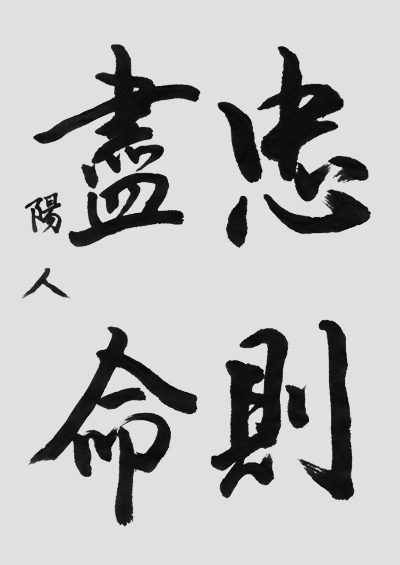 忠則
盡命
陽人